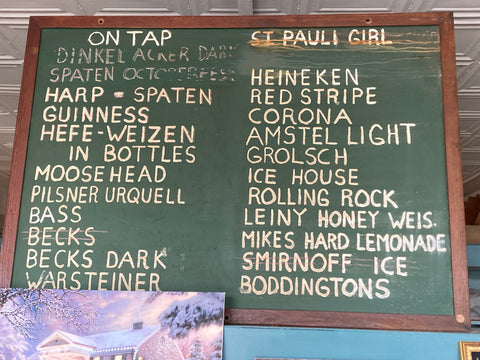 ON TAP
DINKEL ACKER DARK
SPATEN OCTOBERFEST
HARP - SPATEN
GUINNESS
HEFE-WEIZEN
IN BOTTLES
MOOSEHEAD
PILSNER URQUELL
BASS
BECKS
BECKS DARK
WARSTEINER
ST PAULI GIRL
HEINEKEN
RED STRIPE
CORONA
AMSTEL LIGHT
GROLSCH
ICE HOUSE
ROLLING ROCK
LEINY HONEY WEIS.
MIKES HARD LEMONADE
SMIRNOFF ICE
BODDINGTONS